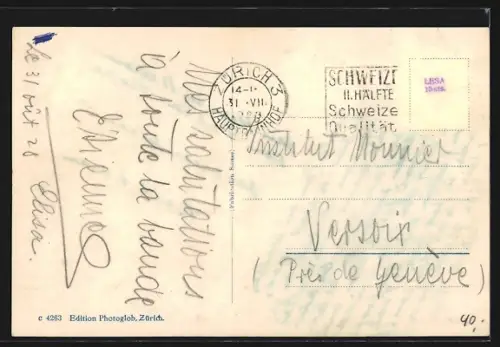 Le 31 août 28
Mes salutations
à toute la bande
Etienne
ZÜRICH 3
31.VII.
HAUPTBAHNHOF
SCHWEIZE
II. HÄLFTE
Schweize
Qualität
Institut Monnier
Versoix
(Près de Genève)
c 4263 Edition Photoglob, Zürich.
40.